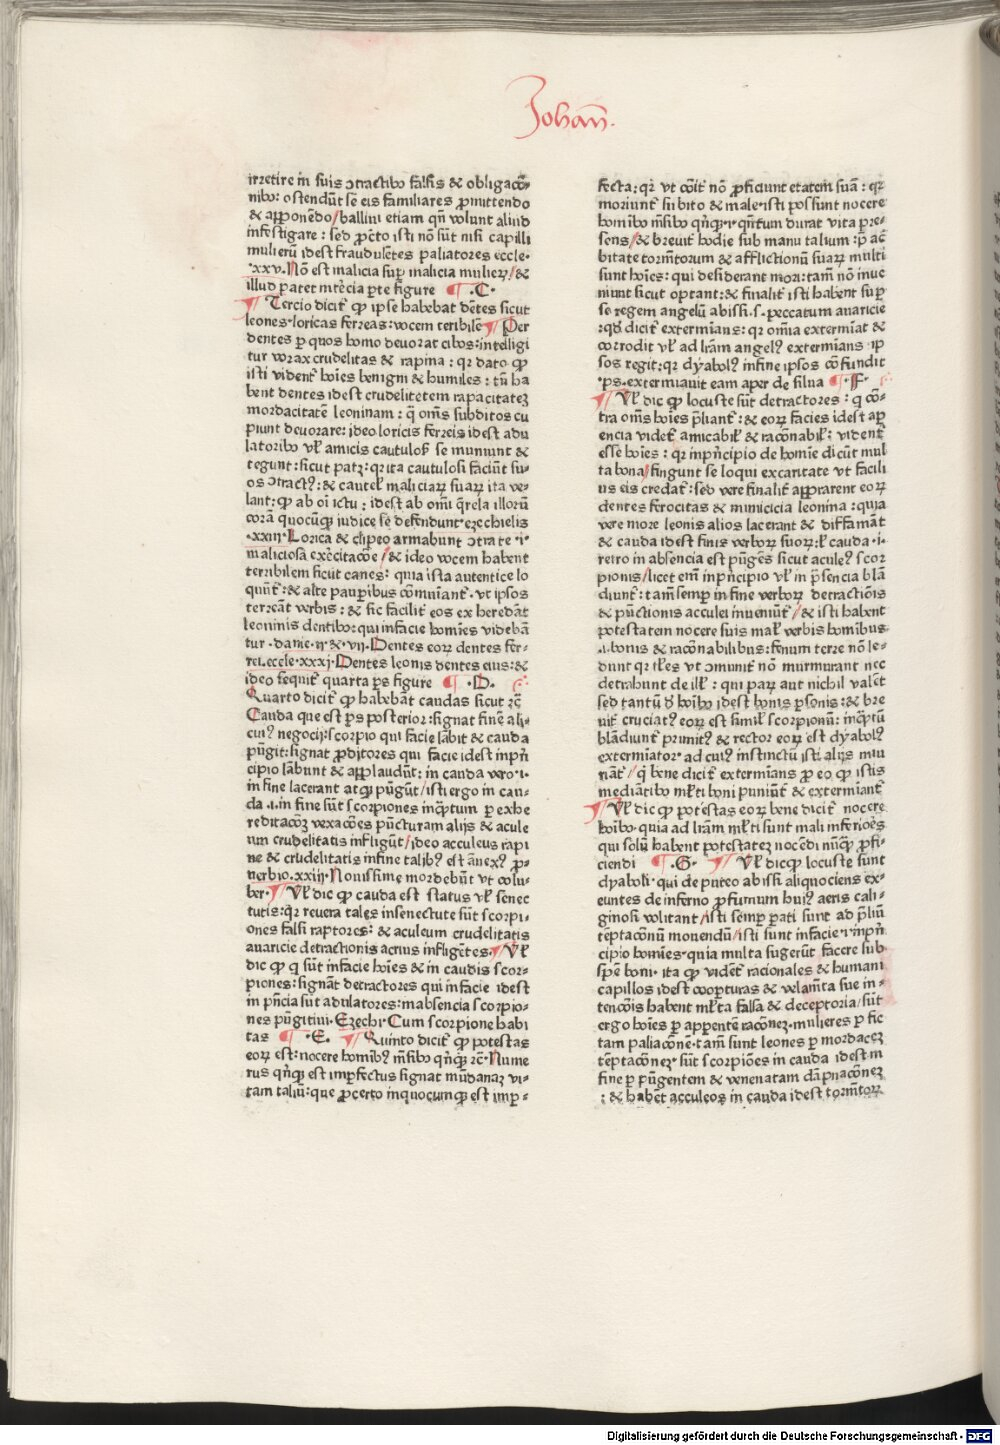 Johan̄.
irretire in suis ↄtractibꝰ falsis & obligacōi-
nibꝰ: ostendūt se eis familiares promittendo
& apponēdo/ ballini etiam qn̄ volunt aliud
infestigare: sed ꝓcto isti nō sūt nisi capilli
mulierū idest fraudulētes paliatores eccle·
·xxv. Nō est malicia suꝑ malicia mulieꝝ/ &
illud patet in tercia ꝑte figure ¶ ·C·
¶ Tercio dicit̄ ꝙ ipse habebat dētes sicut
leones·loricas ferreas: vocem teribilē ¶ Per
dentes ꝑ quos homo deuorat cibos: intelligi
tur vorax crudelitas & rapina: qꝛ dato ꝙ
isti videnť hoīes benigni & humiles: tn̄ ha
bent dentes idest crudelitatem rapacitateꝫ
mordacitatem leoninam: q̄ oms̄ subditos cu
piunt deuorare: ideo loricis ferreis idest adu
latoribꝰ vl̄ amicis cautulosꝭ se muniunt &
tegunt: sicut patꝫ: qꝛ ita cautulosi faciūt su-
os ↄtractꝰ: & cautel̄ maliciaꝝ suaꝝ ita ve-
lant: ꝙ ab oī ictu: idest ab omī q̄rela illorū
corā quocūqꝫ iudice se defendunt·ezechielis
·xxiij· Lorica & clipeo armabunt ↄtra te·i·
maliciosa exēcitacōe/ & ideo vocem habent
terribilem sicut canes: quia ista autentice lo
quūt̄: & alte pauꝑibus cōminiant̄·vt ipsos
terreāt verbis: & sic facilit̄ eos ex heredāt
leoninis dentibꝰ: qui infacie homīes videbā
tur·danie·ii·& ·vii· Dentes eoꝝ dentes fer-
rei·eccle·xxxj· Dentes leonis dentes eius: &
ideo seq̄uit̄ quarta ps̄ figure ¶ ·D·
Quarto dicit̄ ꝙ habebāt caudas sicut ꝛc̄
Cauda que est ps̄ posterior: signat finē ali-
cuiꝰ negocij: scorpio qui facie lābit & cauda
pūgit: signat ꝓditores qui facie idest inpn̄
cipio lābunt & applaudūt: in cauda vero·i·
in fine lacerant atqꝫ pūgūt/ isti ergo in cau-
da·i·in fine sūt scorpiones incp̄tum ꝑ exhe
reditacōꝫ vexacōes pūcturam alijs & acule
um crudelitatis infligūt/ ideo acculeus rapi
ne & crudelitatis infine talibꝰ est ānexꝰ ꝓ-
uerbio·xxiij· Nouissime mordebūt vt colu-
ber· ¶ Vl̄ dic ꝙ cauda est status vl̄ senec
tutis: qꝛ reuera tales insenectute sūt scorpi-
ones falsi raptores: & aculeum crudelitatis
auaricie detractionis acrius infligētes· ¶ Vl̄
dic ꝙ q̄ sūt infacie hoīes & in caudis scor-
piones: signāt detractores qui infacie idest
in pn̄cia sūt adulatores: inabsencia scorpio-
nes pūgitiui·Ezechi·Cum scorpione habi
tas ¶ ·E· ¶ Quinto dicit̄ ꝙ potestas
eoꝝ est: nocere hominibꝰ mēsibꝰ qn̄qꝫ ꝛc̄·Nume
rus qn̄qꝫ est imperfectus signat mūdanaꝫ vi-
tam taliū: que ꝓcerto inquocumqꝫ est imꝑ-
fecta: qꝛ vt cōit̄ nō ꝓficiunt etatem suā: qꝛ
moriunt̄ subito & male·isti possunt nocere
hominibꝰ mēsibꝰ qn̄qꝫ·i·qn̄tum durat vita pre-
sens/ & breuit̄ hodie sub manu talium: p̄ ac̄
bitate torm̄torum & afflictionū suaꝝ multi
sunt hoīes: qui desiderant mori: tam̄ nō inue
niunt sicut optant: & finalit̄ isti habent suꝑ
se regem angelū abissi·s·peccatum auaricie
: qđ dicit̄ extermīans: qꝛ omia extermiāt &
corrodit vl̄ ad lr̄am angelꝰ extermīans ip
sos regit: qꝛ dyabolꝰ infine ipsos cōfundit
·ps·exterminauit eam aper de silua ¶ ·F·
¶ Vl̄ dic ꝙ locuste sūt detractores: q̄ cō-
tra oms̄ hoīes p̄liant̄: & eoꝝ facies idest ap
encia videt̄ amicabil̄ & racōnabil̄: vident̄
esse hoīes: qꝛ inpn̄cipio de homīe dicūt mul
ta bona/ fingunt se loqui excaritate vt facili
us eis credat̄: sed vere finalit̄ apparent eoꝝ
dentes ferocitas & inimicicia leonina: quia
vere more leonis alios lacerant & diffamāt
& cauda idest finis verboꝝ suoꝝ: l̄ cauda·i·
retro in absencia est pūgēs sicut aculeꝰ scor
pionis/ licet em̄ inpn̄cipio vl̄ in p̄sencia blā
diunt̄: tam̄ semꝑ in fine verboꝝ detractiōis
& pūctionis acculei inueniūt̄/ & isti habent
potestatem nocere suis mal̄ verbis hominibus·
·i·bonis & racōnabilibus: fenum terre nō le-
dunt qꝛ tl̄es vt ↄmunit̄ nō murmurant nec
detrahunt de ill̄: qui paꝝ aut nichil valēt
sed tantū đ hoībꝰ idest bonis ꝑsonis: & bre
uit̄ cruciatꝰ eoꝝ est simil̄ scorpionū: incp̄tū
blādiunt̄ primitꝰ & rector eoꝝ est dyabolꝰ
extermiator·ad cuiꝰ instinctū isti alijs miu
nāt̄/ q̄ bene dicit̄ extermians ꝓ eo ꝙ istis
mediātibꝰ ml̄ti boni puniūt̄ & extermiant̄
¶ Vl̄ dic ꝙ potestas eoꝝ bene dicit̄ nocere
hoībꝰ·quia ad lr̄am ml̄ti sunt mali inferiōes
qui solū habent potestateꝫ nocēdi nūqꝫ ꝓfi-
ciendi ¶ ·G· ¶ Vl̄ dicꝙ locuste sunt
dyaboli·qui de puteo abissi aliquociens ex-
euntes de inferno ꝓfumum huiꝰ aeris cali-
ginosi volitant/ isti semꝑ pati sunt ad p̄liū
tēptacōnū mouendū/ isti sunt infacie·i·inpn̄
cipio homīes·quia multa sugerūt facere sub
spē boni·ita ꝙ vident̄ racionales & humani
capillos idest cooperturas & velam̄ta sue in-
tencōis habent ml̄ta falsa & deceptoria/ sūt
ergo hoīes ꝑ appentē racōnez·mulieres ꝑ fic
tam paliacōne·tam̄ sunt leones ꝑ mordaceꝫ
tēptacōneꝫ·sūt scorpiōes in cauda idest in
fine ꝑ pūgentem & venenatam dāpnacōneꝫ
: & habēt acculeos in cauda idest torm̄toꝝ
Digitalisierung gefördert durch die Deutsche Forschungsgemeinschaft - DFG